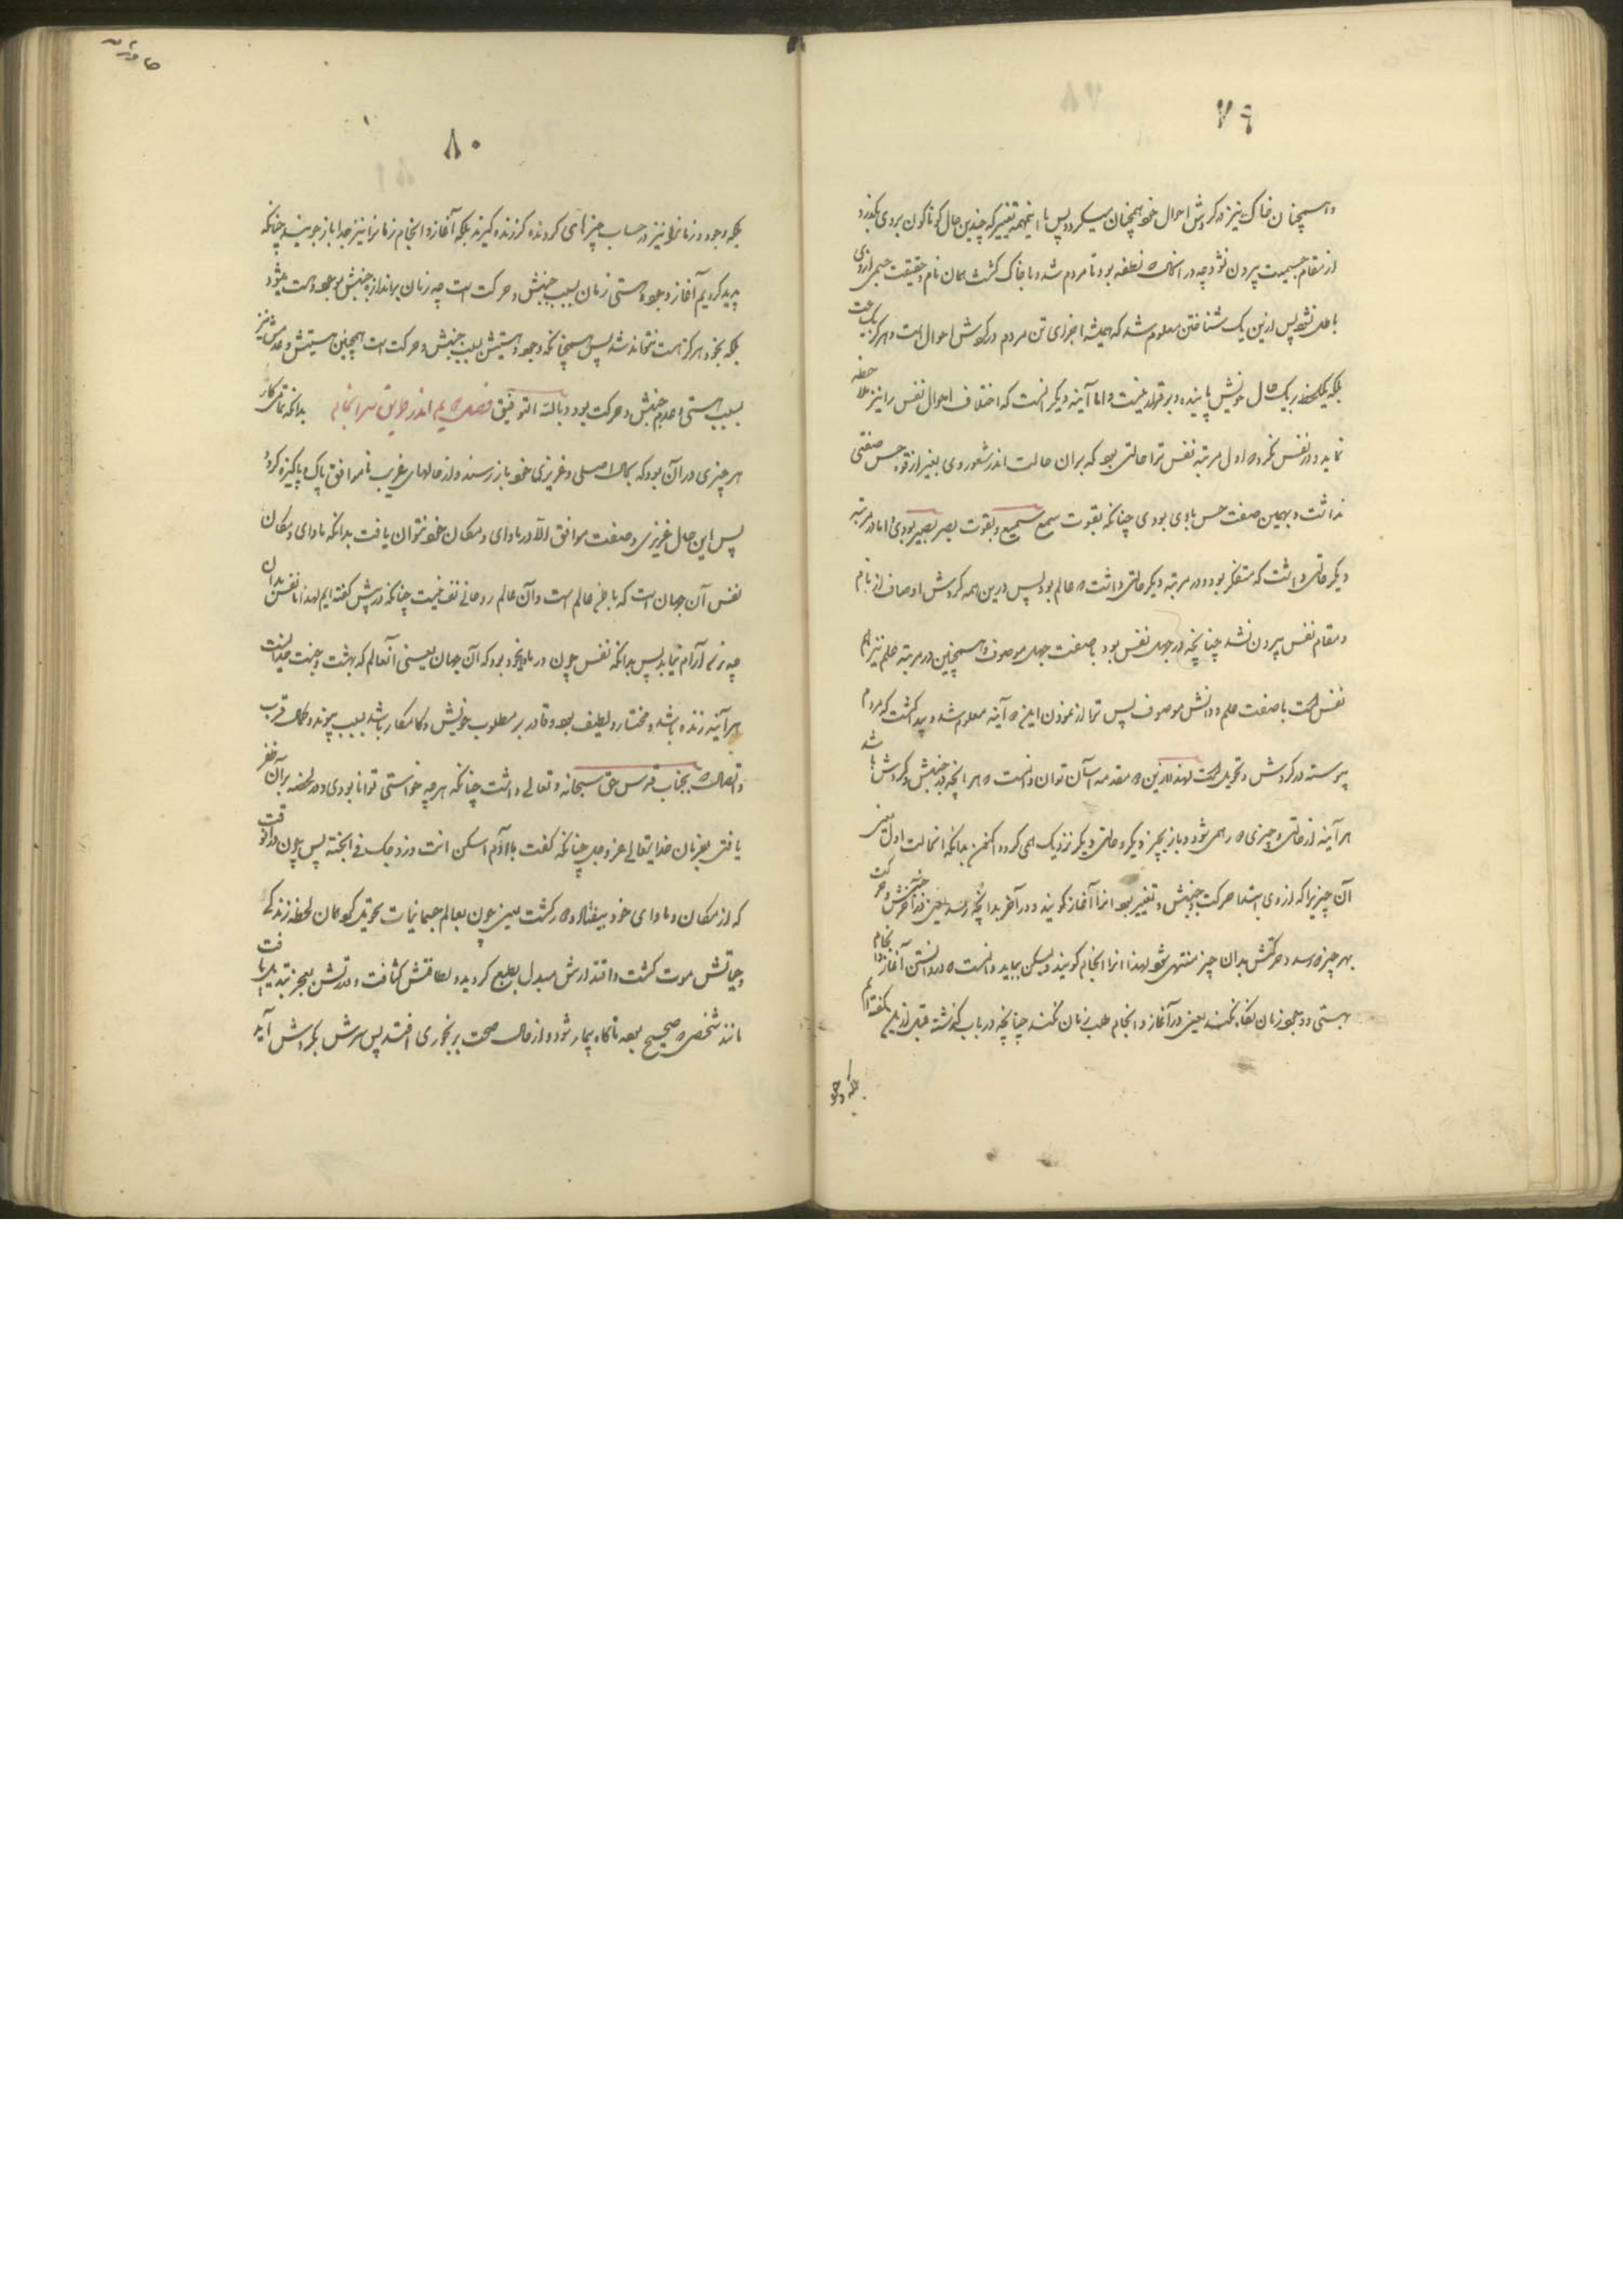 ٧٩
و همچنان خاک نیز در گردش احوال خود همچنان میگردد پس با اینهمه تغییر که چندین حال گوناگون بروی بگذرد
از مقام جسمیت بیرون نشود چه در آنکه نطفه بود تا مردم شد و با خاک گشت همان نام و حقیقت جسم از وی
باطل نشد پس ازین یک شناختن معلوم شد که همیشه اجزای تن مردم در گردش احوال است و هرگز یک ساعت
بلکه یک لحظه بر یک حال خویش پاینده و برقرار نیست و اما آینه دیگر آنست که اختلاف احوال نفس را نیز ملاحظه
نماید و در نفس نگرد اول مرتبه نفس ترا حالتی بود که بران حالت اندر شعور وی بغیر از قوه حس صفتی
نداشت و بهمین صفت حس باوی بودی چنانکه بقوت سمع سمیع و بقوت بصر بصیر بودی و اما در مرتبه
دیگر حالتی داشت که متفکر بود و در مرتبه دیگر حالتی داشت عالم بود پس درین همه گردش اوصاف از نام
و مقام نفس بیرون نشد چنانچه در جهل نفس بود با صفت جهل موصوف و همچنین در مرتبه علم نیز هم
نفس است با صفت علم و دانش موصوف پس ترا از نمودن این آینه معلوم شد و پیدا گشت که مردم
پیوسته در گردش و تحویل است لهذا ازین مقدمه آسان توان دانست هر آنچه در جنبش و گردش باشد
هر آینه از حالتی و چیزی همی شود و باز بچیز دیگر و حالتی دیگر نزدیک همی گردد اکنون بدانکه آنحالت اول یعنی
آن چیزیرا که از وی ابتدا حرکت و جنبش و تغییر بود آنرا آغاز گویند و در آخر بدانچه رسد یعنی در آخر جنبش و حرکت
بهر چیز رسد و حرکتش بدان چیز منتهی شود لهذا آنرا انجام گویند ولیکن بباید دانست در دانستن آغاز و انجام
بهستی و وجود زمان نگاه نکنند یعنی در آغاز و انجام طلب زمان نکنند چنانچه در باب گذشته قبل ازین گفته ایم
بلکه وجود
٨٠
بلکه وجود و زمانرا نیز در حساب چیزهای گردنده گیرند بلکه آغاز و انجام زمانرا نیز جدا باز جویند چنانکه
پدید کردیم آغاز وجود و هستی زمان بسبب جنبش و حرکت است چه زمان بر اندازه جنبش موجود و هست میشود
بلکه بخود هرگز هست نتواند شد پس همچنانکه وجود و هستیش بسبب جنبش و حرکت است همچنین نیستیش و عدمش نیز
بسبب هستی و عدم جنبش و حرکت بود و بالله التوفیق فصل اندر سرانجام بدانکه تمامی کار
هر چیزی در آن بود که بحال اصلی و غریزی خود باز رسند و از حالهای غریب ناموافق پاک و پاکیزه گردد
پس این حال غریزی و صفت موافق الا در ماوای و مکان خود نتوان یافت بدانکه ماوای و مکان
نفس آن جهان است که باطن عالم است و آن عالم روحانی نفسیست چنانکه در پیش گفته ایم لهذا نفس بدان
چه آرام نیابد پس بدانکه نفس چون در ماوای خود بود که آن جهان یعنی آنعالم که بهشت و جنت خداست
هر آینه زنده باشد و مختار و لطیف بود و قادر بر مطلوب خویش و کامکار باشد بسبب پیوند و کمال قرب
و اتصال بجناب قدس حق سبحانه و تعالی داشت چنانکه هر چه خواستی توانا بودی و در لحظه بر آن ظفر
یافتی بفرمان خدایتعالی عز و جل چنانکه گفت یا آدم اسکن انت و زوجک فی الجنة پس چون در آنوقت
که از مکان و ماوای خود بیفتاد و گشت یعنی چون بعالم جسمانیات تحویل کرد همان لحظه زندگی
و حیاتش موت گشت و اقتدارش مبدل بطبع گردید و لطافتش کثافت و قدرتش بعجز تبدیل یافت
مانند شخص صحیح بود ناگاه بیمار شود و از حالت صحت برنجوری افتد پس سرش بگردش آید